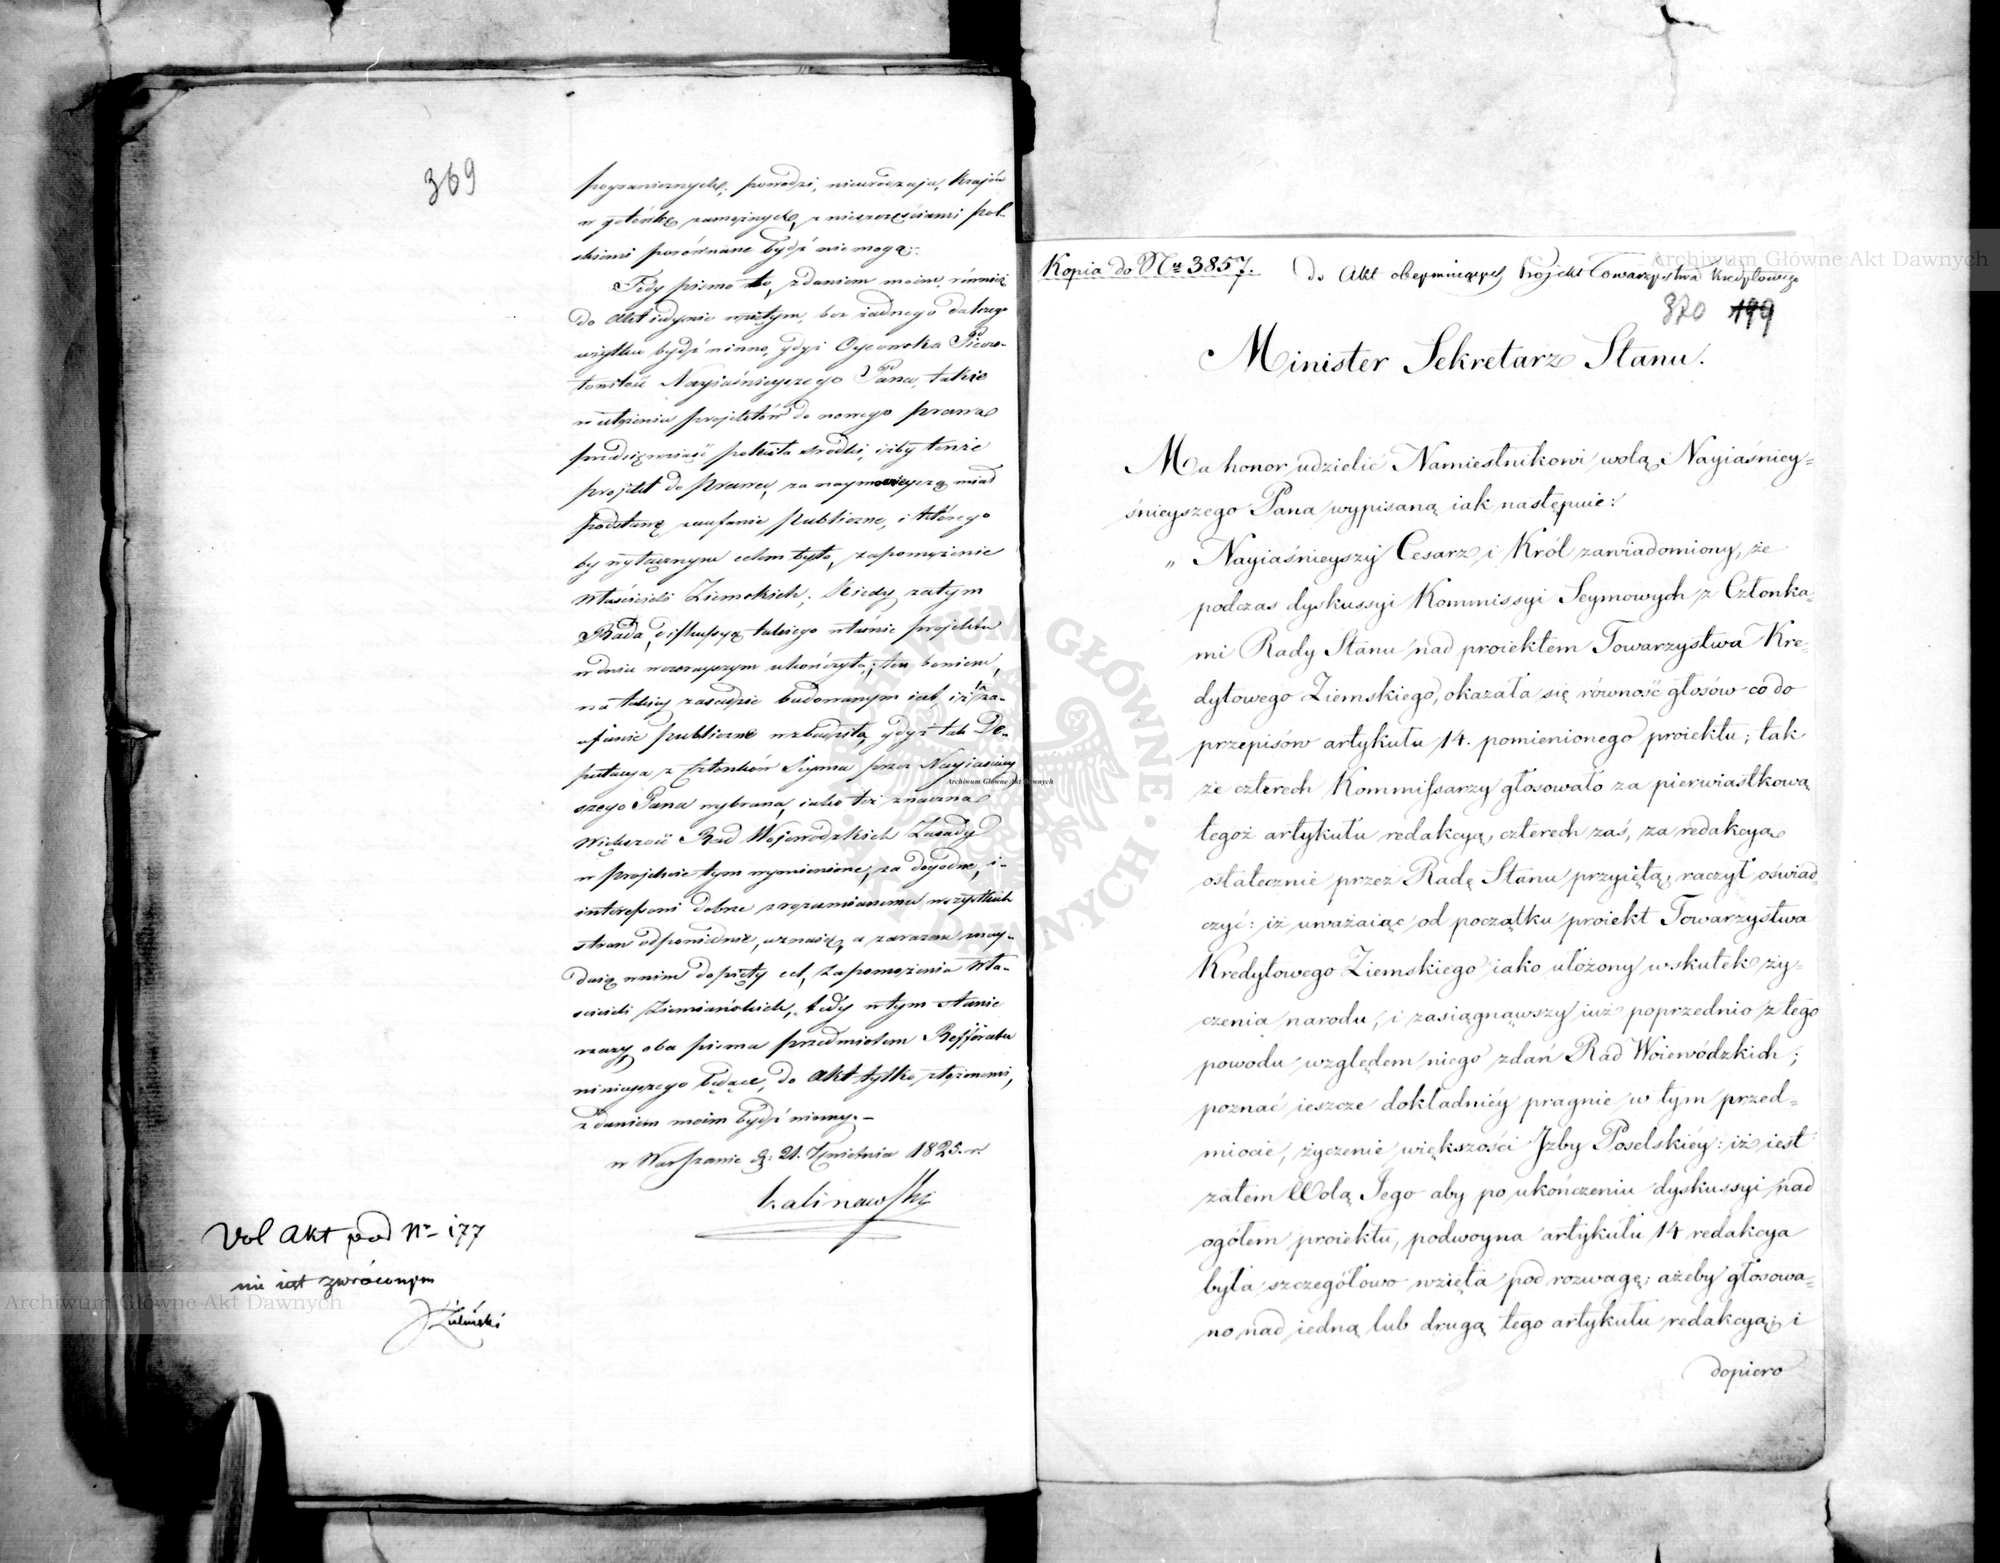 369
pogranicznych; powodzi, nieurodzaju, krajów
w gotówkę zamożnych, z nieszczęściami pol-
skiemi porównane bydź nie mogą;
Tedy pismo to, zdaniem moim, również
do Akt iedynie wziętym, bez żadnego dalszego
użytku bydź winno, gdyż Oycowska Pieczo-
łowitość Nayiaśnieyszego Pana, takie
w ułożeniu projektów do nowego prawa
przedsięwziąć poleciła środki, iżby tenże
projekt do prawa, za naymocnieyszą miał
podstawę zaufanie publiczne, i którego
by wyłącznym celem było, zapomożenie
Właścicieli Ziemskich; Kiedy zatym
Rada, diskussyą takiego właśnie projektu
w dniu wczorayszym ukończyła; ten bowiem,
na takiey zasadzie budowanym iest, iż ta za-
ufanie publiczne wzbudziła, gdyż tak De-
putacya z Członków Seymu przez Nayiaśniey
szego Pana wybrana, iako też znaczna
Większość Rad Wojewodzkich Zasady
w projekcie tym wymienione, za dogodne, i
interessowi dobrze zrozumianemu wszystkich
stron odpowiednie, uznaią, a zarazem znay-
duią w nim dopięty cel, zapomożenia Wła-
ścicieli Ziemiańskich, tedy w tym stanie
rzeczy oba pisma przedmiotem Refferatu
ninieyszego będące, do Akt tylko złożonemi,
zdaniem moim bydź winny. –
w Warszawie d: 21. Kwietnia 1825. r.
Kalinowski
Vol Akt pod Nr 177
nie iest zwróconym
Kopia do Nru 3857.
do Akt obeymuiących Projekt Towarzystwa Kredytowego
370 199
Minister Sekretarz Stanu.
Ma honor udzielić Namiestnikowi wolą Nayiaśniey=
śnieyszego Pana wypisaną iak następuie:
„ Nayiaśnieyszy Cesarz i Król zawiadomiony, że
podczas dyskussyi Kommissyi Seymowych z Członka=
mi Rady Stanu nad proiektem Towarzystwa Kre=
dytowego Ziemskiego, okazała się równość głosów co do
przepisów artykułu 14. pomienionego proiektu; tak
że czterech Kommissarzy głosowało za pierwiastkową
tegoż artykułu redakcyą, czterech zaś, za redakcyą
ostatecznie przez Radę Stanu przyiętą, raczył oświad=
czyć: iż uważaiąc od początku proiekt Towarzystwa
Kredytowego Ziemskiego iako ułożony w skutek ży=
czenia narodu, i zasiągnąwszy iuż poprzednio z tego
powodu względem niego zdań Rad Woiewódzkich;
poznać ieszcze dokładniéy pragnie w tym przed=
miocie, życzenie większości Jzby Poselskiéy: iż iest
zatem Wolą Jego aby po ukończeniu dyskussyi nad
ogółem proiektu, podwoyna artykułu 14 redakcya
była szczegółowo wzięta pod rozwagę; ażeby głosowa=
no nad iedną lub drugą tego artykułu redakcyą; i
dopiero
Archiwum Główne Akt Dawnych
Archiwum Główne Akt Dawnych
Archiwum Główne Akt Dawnych
ARCHIWUM GŁÓWNE AKT DAWNYCH